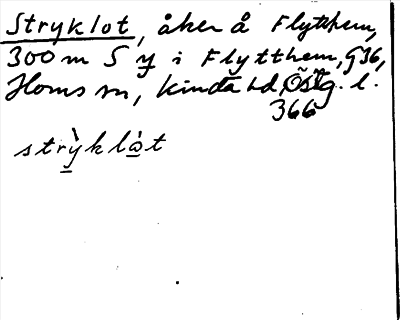 Stryklot, åker å Flytthem,
300 m S y i Flytthem, G36,
Horns sn, Kinda hd, Östg. l.
366
strỳklòt